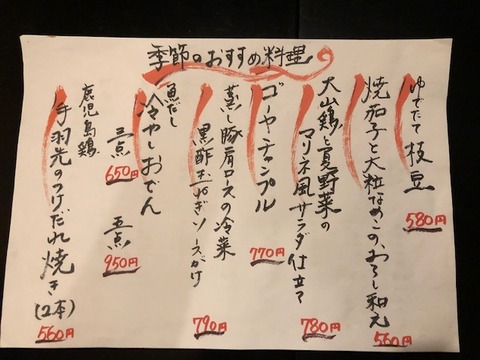 季節のおすすめ料理
ゆでたて 枝豆
580円
焼茄子と大粒なめこのおろし和え
560円
大山鶏と夏野菜の
マリネ風サラダ仕立て
780円
ゴーヤーチャンプル
770円
蒸し豚肩ロースの冷菜
黒酢玉ねぎソースがけ
790円
魚だし
冷やしおでん
三点
650円
五点
950円
鹿児島鶏
手羽先のつけだれ焼き(2本)
560円